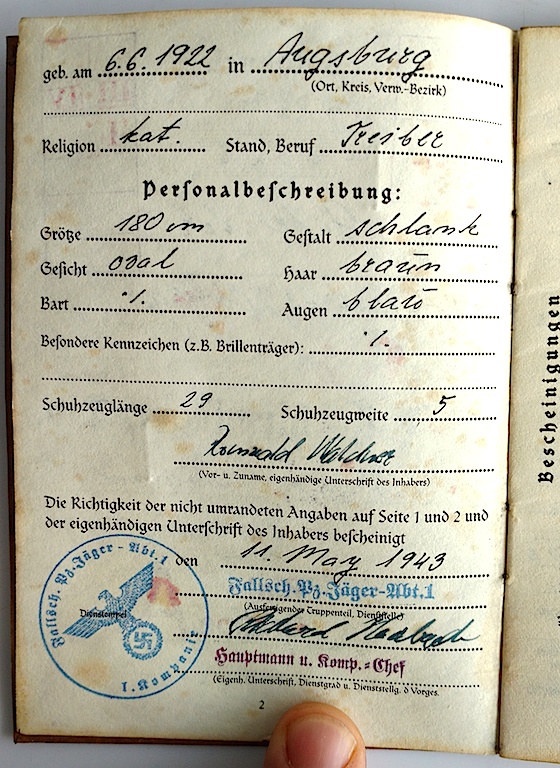 geb. am 6.6.1922 in Augsburg
(Ort, Kreis, Verw.-Bezirk)
Religion kat. Stand, Beruf
Personalbeschreibung:
Größe 180 cm Gestalt schlank
Gesicht oval Haar braun
Bart ·/. Augen blau
Besondere Kennzeichen (z.B. Brillenträger): ·/.
Schuhzeuglänge 29 Schuhzeugweite 5
(Vor- u. Zuname, eigenhändige Unterschrift des Inhabers)
Die Richtigkeit der nicht umrandeten Angaben auf Seite 1 und 2 und
der eigenhändigen Unterschrift des Inhabers bescheinigt
den 11. May 1943
Fallsch. Pz. Jäger - Abt. 1
1. Kompanie
Dienststempel
Fallsch. Pz. Jäger-Abt. 1
(Ausfertigender Truppenteil, Dienststelle)
Hauptmann u. Komp.-Chef
(Eigenh. Unterschrift, Dienstgrad u. Dienststellg. d Vorges.
2
Bescheinigungen